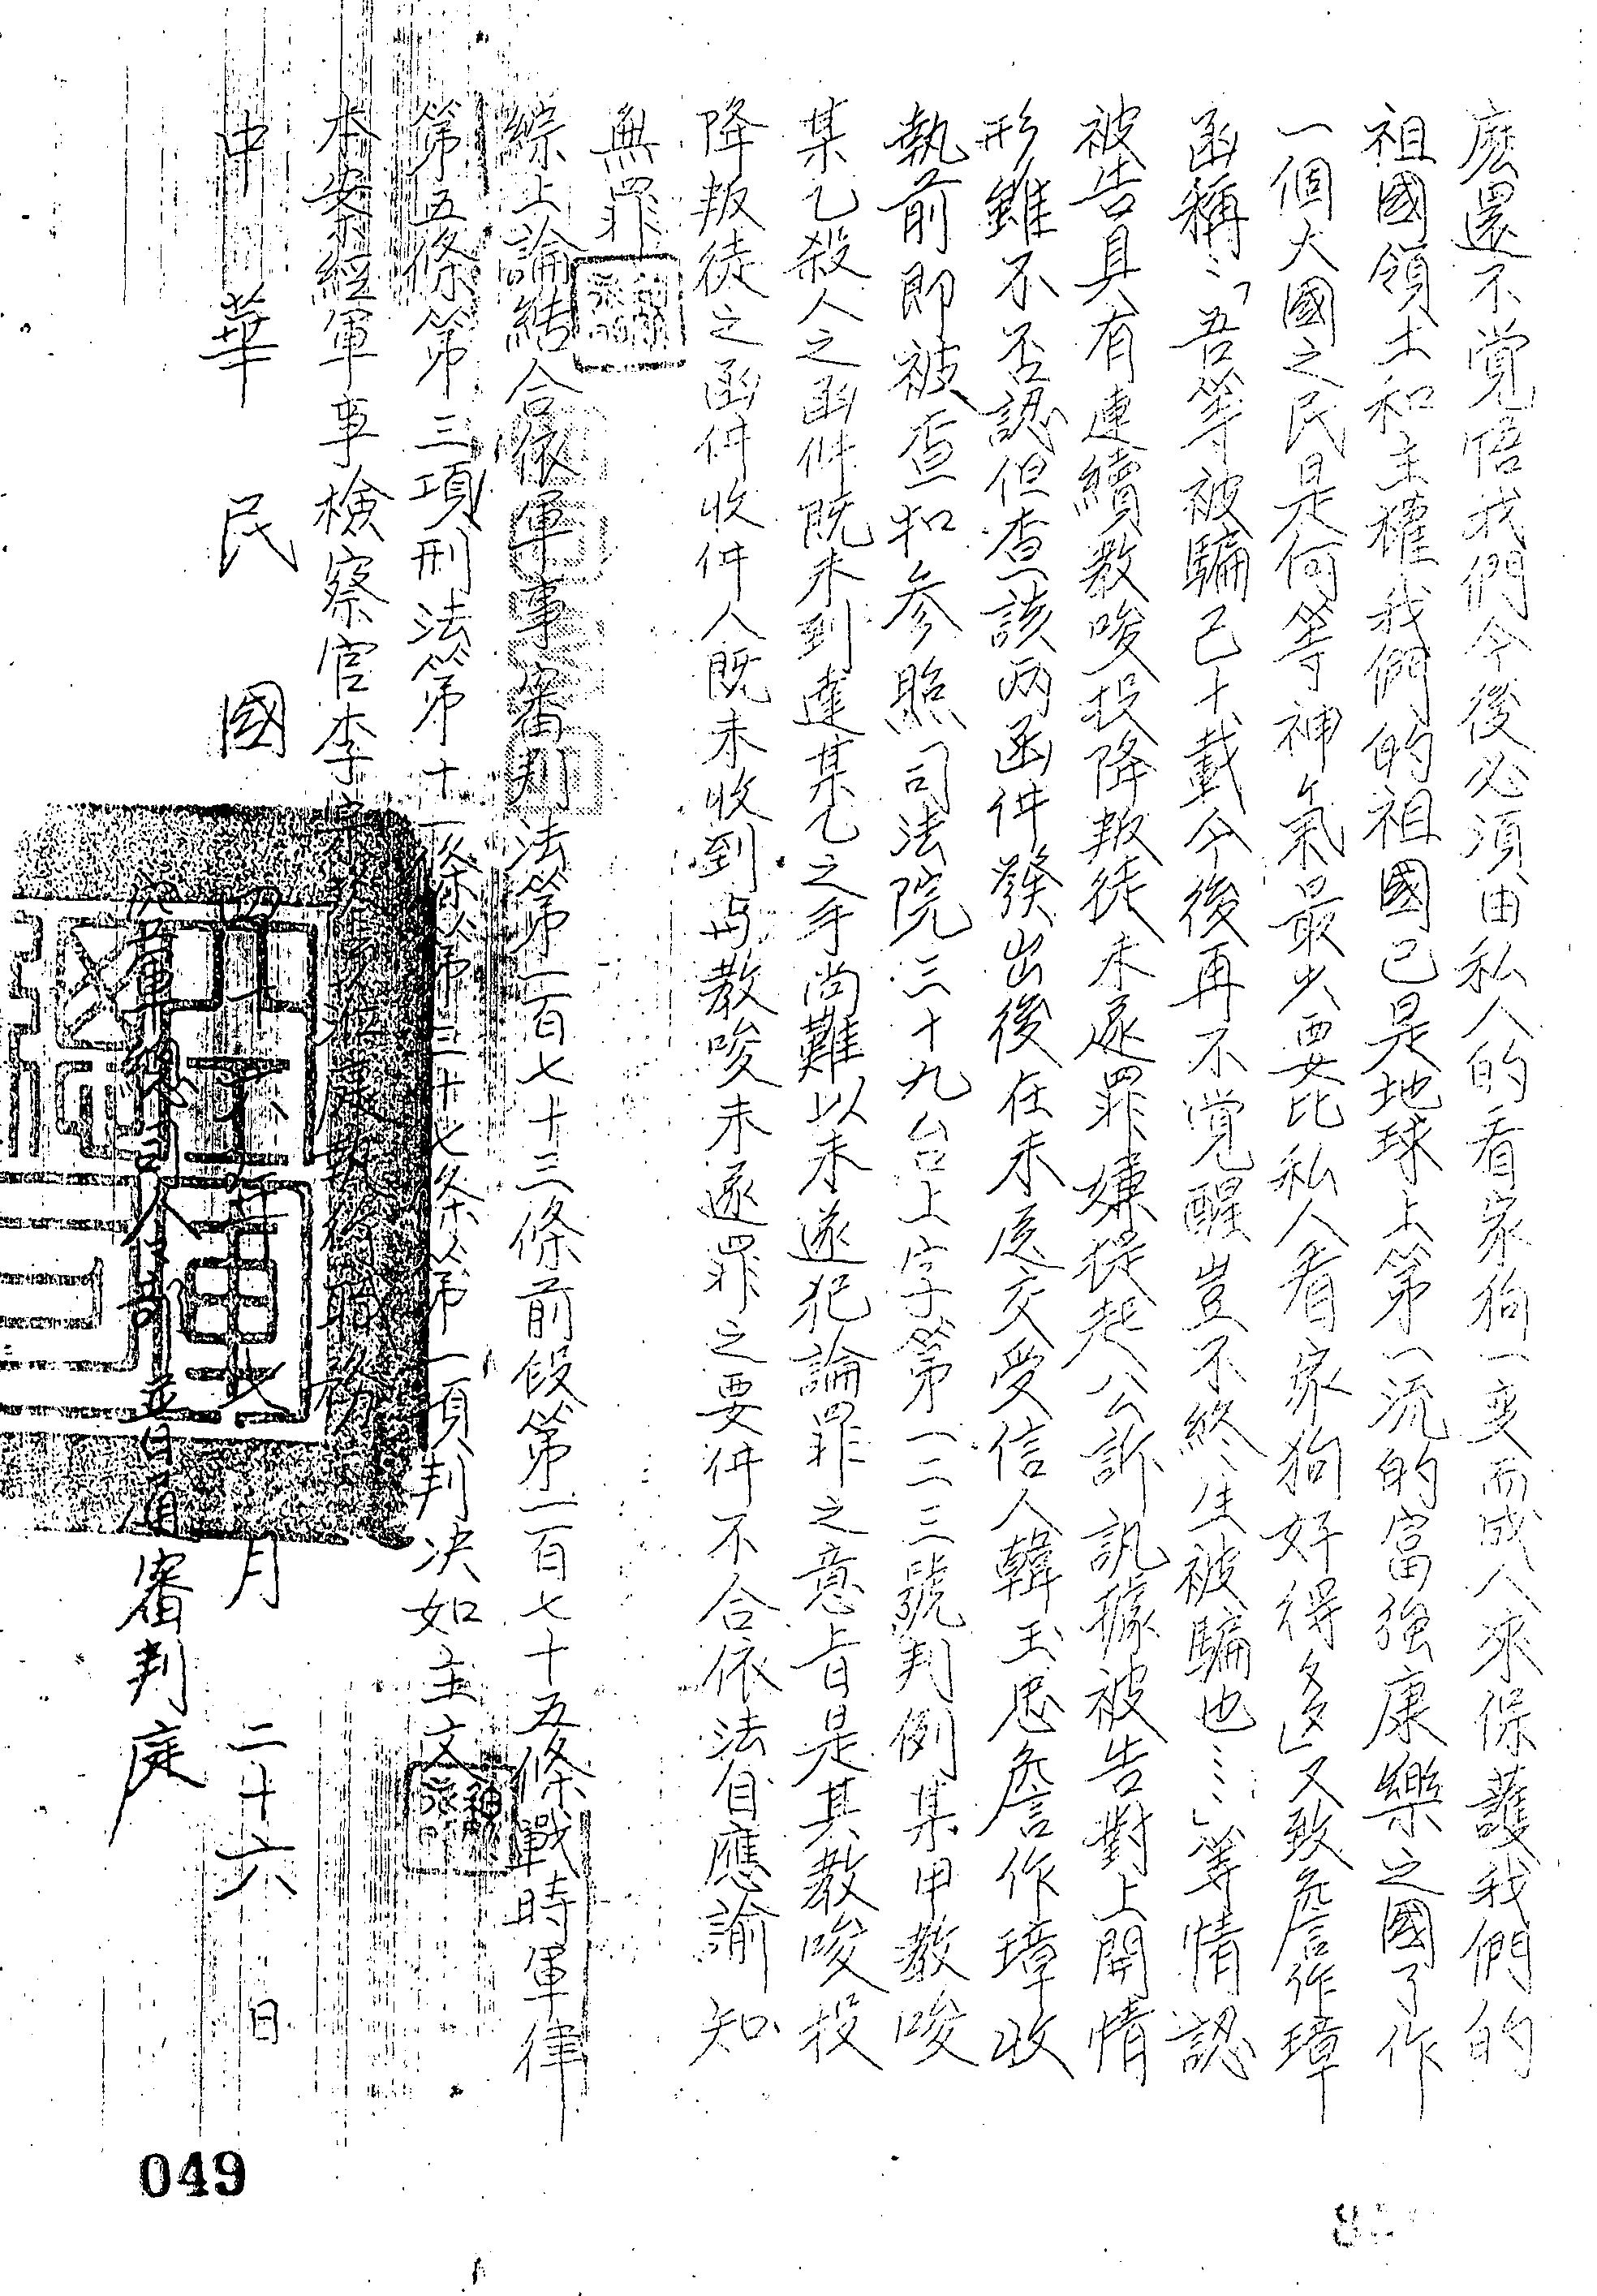 麽還不覚悟我們今後必須由私人的看家狗一变而成人來保護我們的
祖國領土和主權我們的祖國已是地球上第一流的富強康樂之國了作
一個大國之民是何等神氣最少要比私人看家狗好得多」又致詹作璋
函稱:「吾等被騙已十載今後再不覚醒豈不終生被騙也……」等情認
被告具有連續教唆投降叛徒未遂罪嫌提起公訴訊據被告對上開情
形雖不否認但查該两函件發出後在未送交受信人韓玉忠詹作璋收
執前即被查扣参照司法院三十九台上字第一二三號判例某甲教唆
某乙殺人之函件既未到達某乙之手尚難以未遂犯論罪之意旨是其教唆投
降叛徒之函件收件人既未收到与教唆未遂罪之要件不合依法自應諭知
無罪
綜上論結合依軍事審判法第一百七十三條前段第一百七十五條戰時軍律
第五條第三項刑法第十一條第三十七条第一項判决如主文
本案經軍事檢察官李 蒞庭執行職務
中華民國 年 月二十六日
審判庭
049